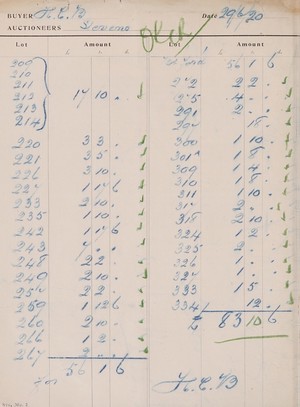 BUYER H. C. B Date 29/6/20
AUCTIONEERS
Okd
Lot Amount
209
210
211
213
213
214
17 10 .
220 3 3 .
221 3 5 .
226 3 10 .
227 1 17 6
233 2 10 .
235 1 10 .
242 1 17 6
243
248 2 2 .
249 2 10 .
254 2 2 .
259 1 12 6
260 2 10 .
266 1 2 .
267 2 . .
56 1 6
Lot Amount
56 1 6
272 2 2 .
275 4 . .
291 2 . .
18 .
300 1 10 .
301A 1 8 .
309 1 4 .
310 1 8 .
311 1 10 .
2 . .
318 2 10 .
324 1 2 .
325 2 . .
326 1 . .
327 1 . .
333 1 5 .
334 12 .
£ 83 10 6
H. C. B